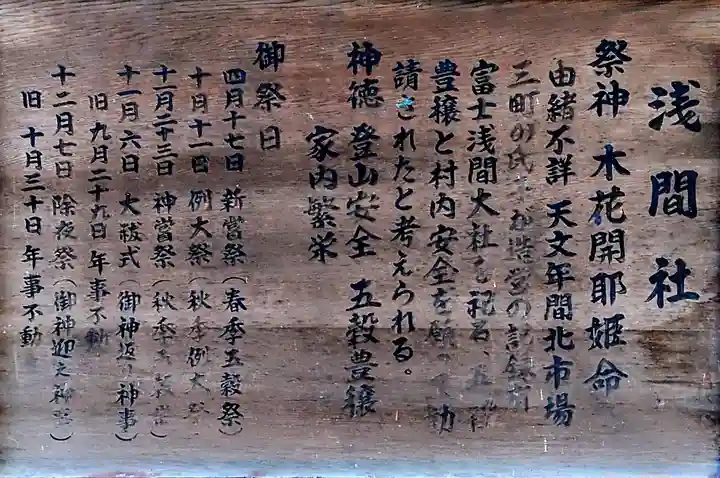 浅間社
祭神 木花開耶姫命
由緒不詳 天文年間北市場
三町の氏 造営の記録
富士浅間大社を祀る、五穀
豊穣と村内安全を願って勧
請されたと考えられる。
神徳 登山安全 五穀豊穣
家内繁栄
御祭日
四月十七日 新嘗祭(春季五穀祭)
十月十一日 例大祭(秋季例大祭
十一月二十三日 神嘗祭(秋季五穀祭)
十一月六日 大祓式(御神返り神事)
旧九月二十九日 年事不動
十二月七日 除夜祭(御神迎え神事)
旧十月三十日 年事不動